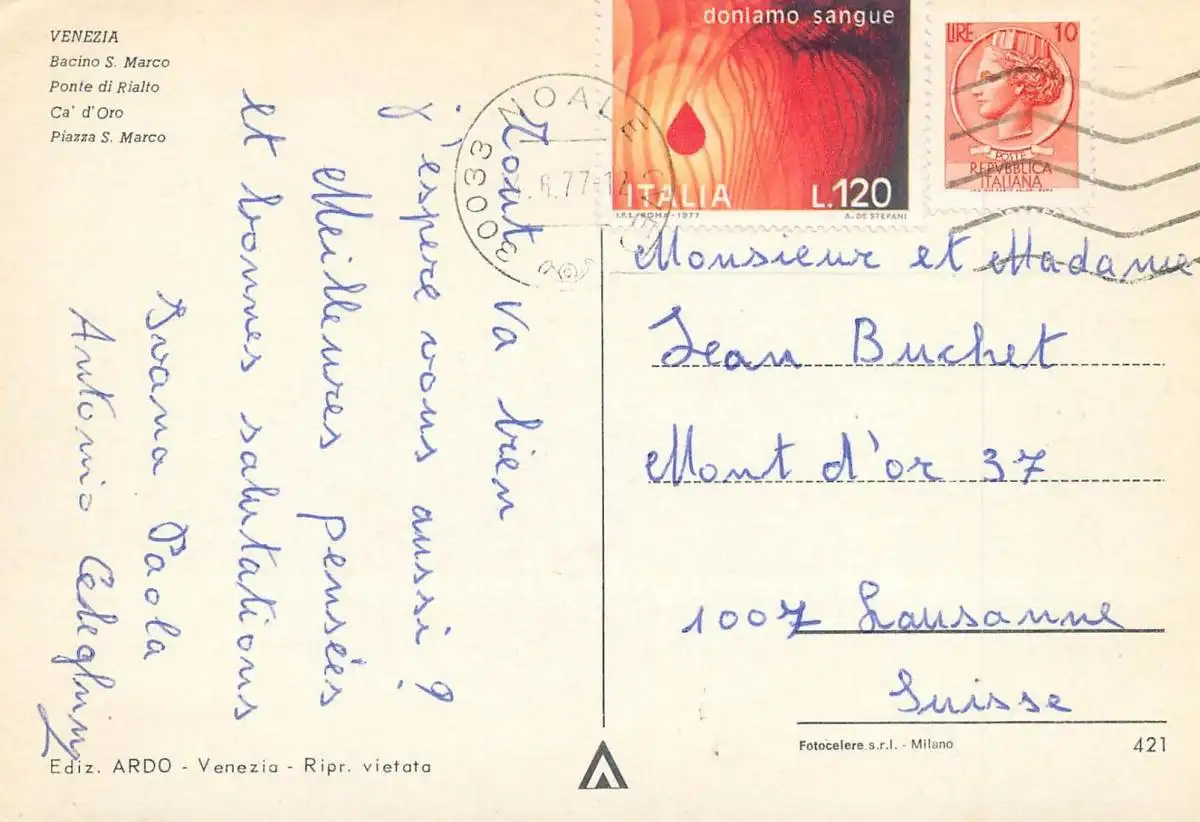 VENEZIA
Bacino S. Marco
Ponte di Rialto
Ca' d'Oro
Piazza S. Marco
doniamo sangue
ITALIA L.120
I.P.S.-ROMA-1977 A. DE STEFANI
LIRE 10
POSTE
REPVBBLICA
ITALIANA
30033 NOALE
6.77-12
Tout va bien
j'espère vous aussi?
Meilleures pensées
et bonnes salutations
Ivana Paola
Antonio
Monsieur et Madame
Jean Buchet
Mont d'or 37
1007 Lausanne
Suisse
Fotocelere s.r.l. - Milano 421
Ediz. ARDO - Venezia - Ripr. vietata